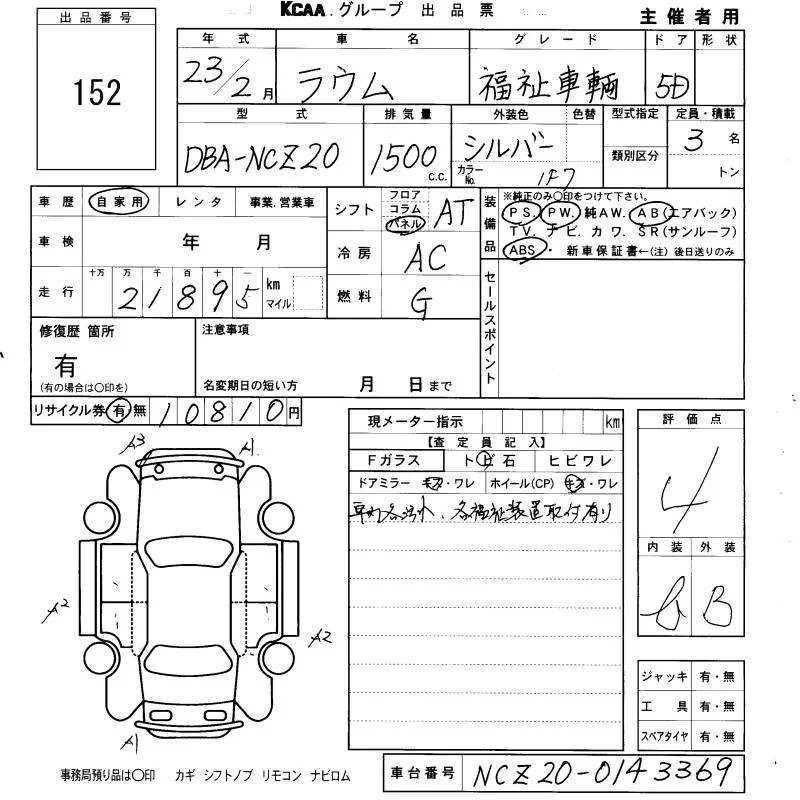 KCAA.グループ 出品票
主催者用
出品番号
152
年式 車名 グレード ドア 形状
23/2月 ラウム 福祉車輌 5D
型式 排気量 外装色 色替 型式指定 定員・積載
DBA-NCZ20 1500 c.c. シルバー 類別区分 3名
カラーNo. 1F7 トン
車歴 自家用 レンタ 事業.営業車
車検 年 月
走行 十万 万 千 百 十 一
21895 km マイル
シフト フロア コラム パネル AT
冷房 AC
燃料 G
装備品 ※純正のみ〇印をつけて下さい。
PS. PW. 純AW. AB(エアバック)
TV. ナビ. カワ. SR(サンルーフ)
ABS・ 新車保証書←(注) 後日送りのみ
セールスポイント
修復歴 箇所
有
(有の場合は〇印を)
注意事項
名変期日の短い方 月 日まで
リサイクル券 有 無 10810円
現メーター指示 km
【査定員記入】
Fガラス トビ石 ヒビワレ
ドアミラー キズ・ワレ ホイール(CP) キズ・ワレ
各福祉装置取付有り
評価点
4
内装 外装
B
A3 A1
A2
A2
A1
ジャッキ 有・無
工具 有・無
スペアタイヤ 有・無
事務局預り品は〇印 カギ シフトノブ リモコン ナビロム
車台番号 NCZ20-0143369